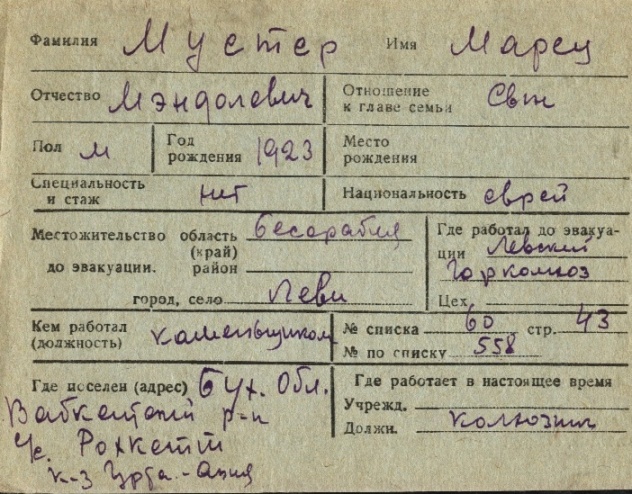 Фамилия Мустер Имя Марец
Отчество Мэндолевич Отношение к главе семьи
Пол м Год рождения 1923 Место рождения
Специальность и стаж нет Национальность еврей
Местожительство до эвакуации. область (край) Бесарабия Где работал до эвакуации Левский Горкомхоз
район
город, село Леви Цех
Кем работал (должность) каменьщиком № списка 60 стр. 43
№ по списку 558
Где поселен (адрес) Бух. Обл. Где работает в настоящее время
Вабкентский р-н Учрежд.
Рохкетт Должн.
к-з Урта-